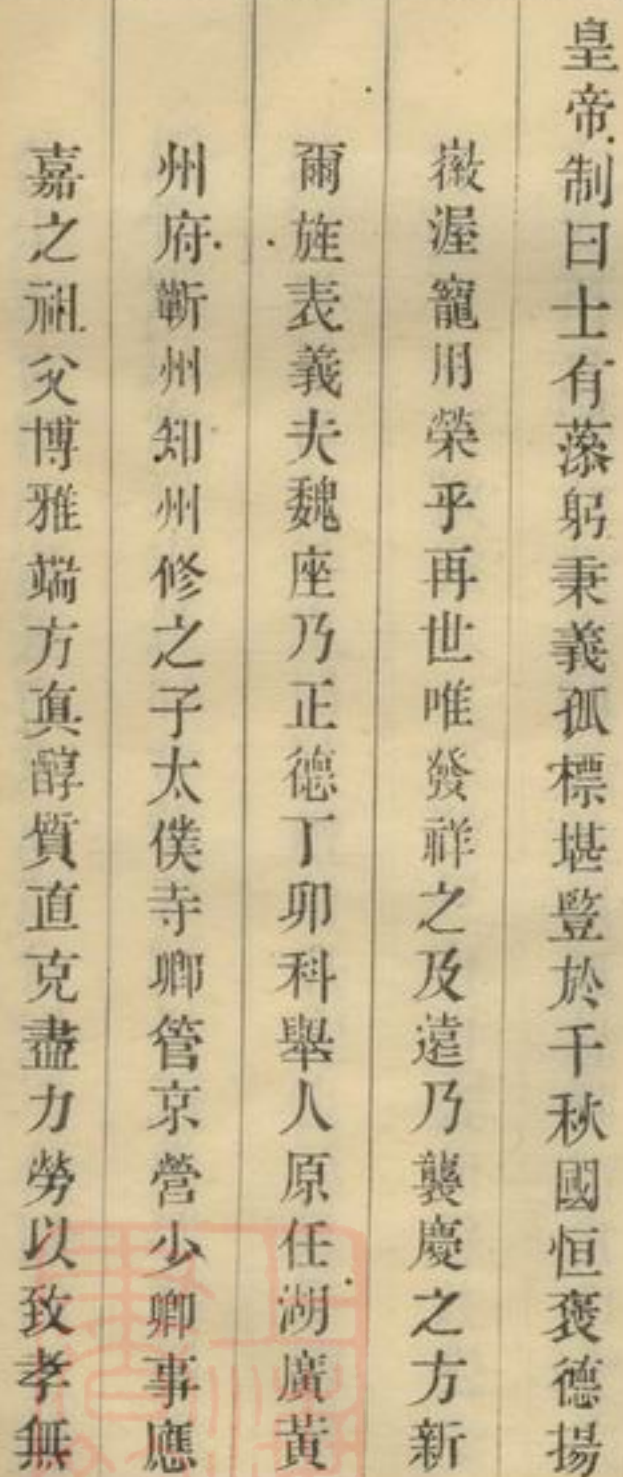 皇帝制曰士有藻躬秉義孤標堪豎於千秋國恒褒德揚
徽渥寵用榮乎再世唯發祥之及遠乃襲慶之方新
爾旌表義夫魏座乃正德丁卯科舉人原任湖廣黃
州府蘄州知州修之子太僕寺卿管京營少卿事應
嘉之祖父博雅端方真醇質直克盡力勞以致孝無